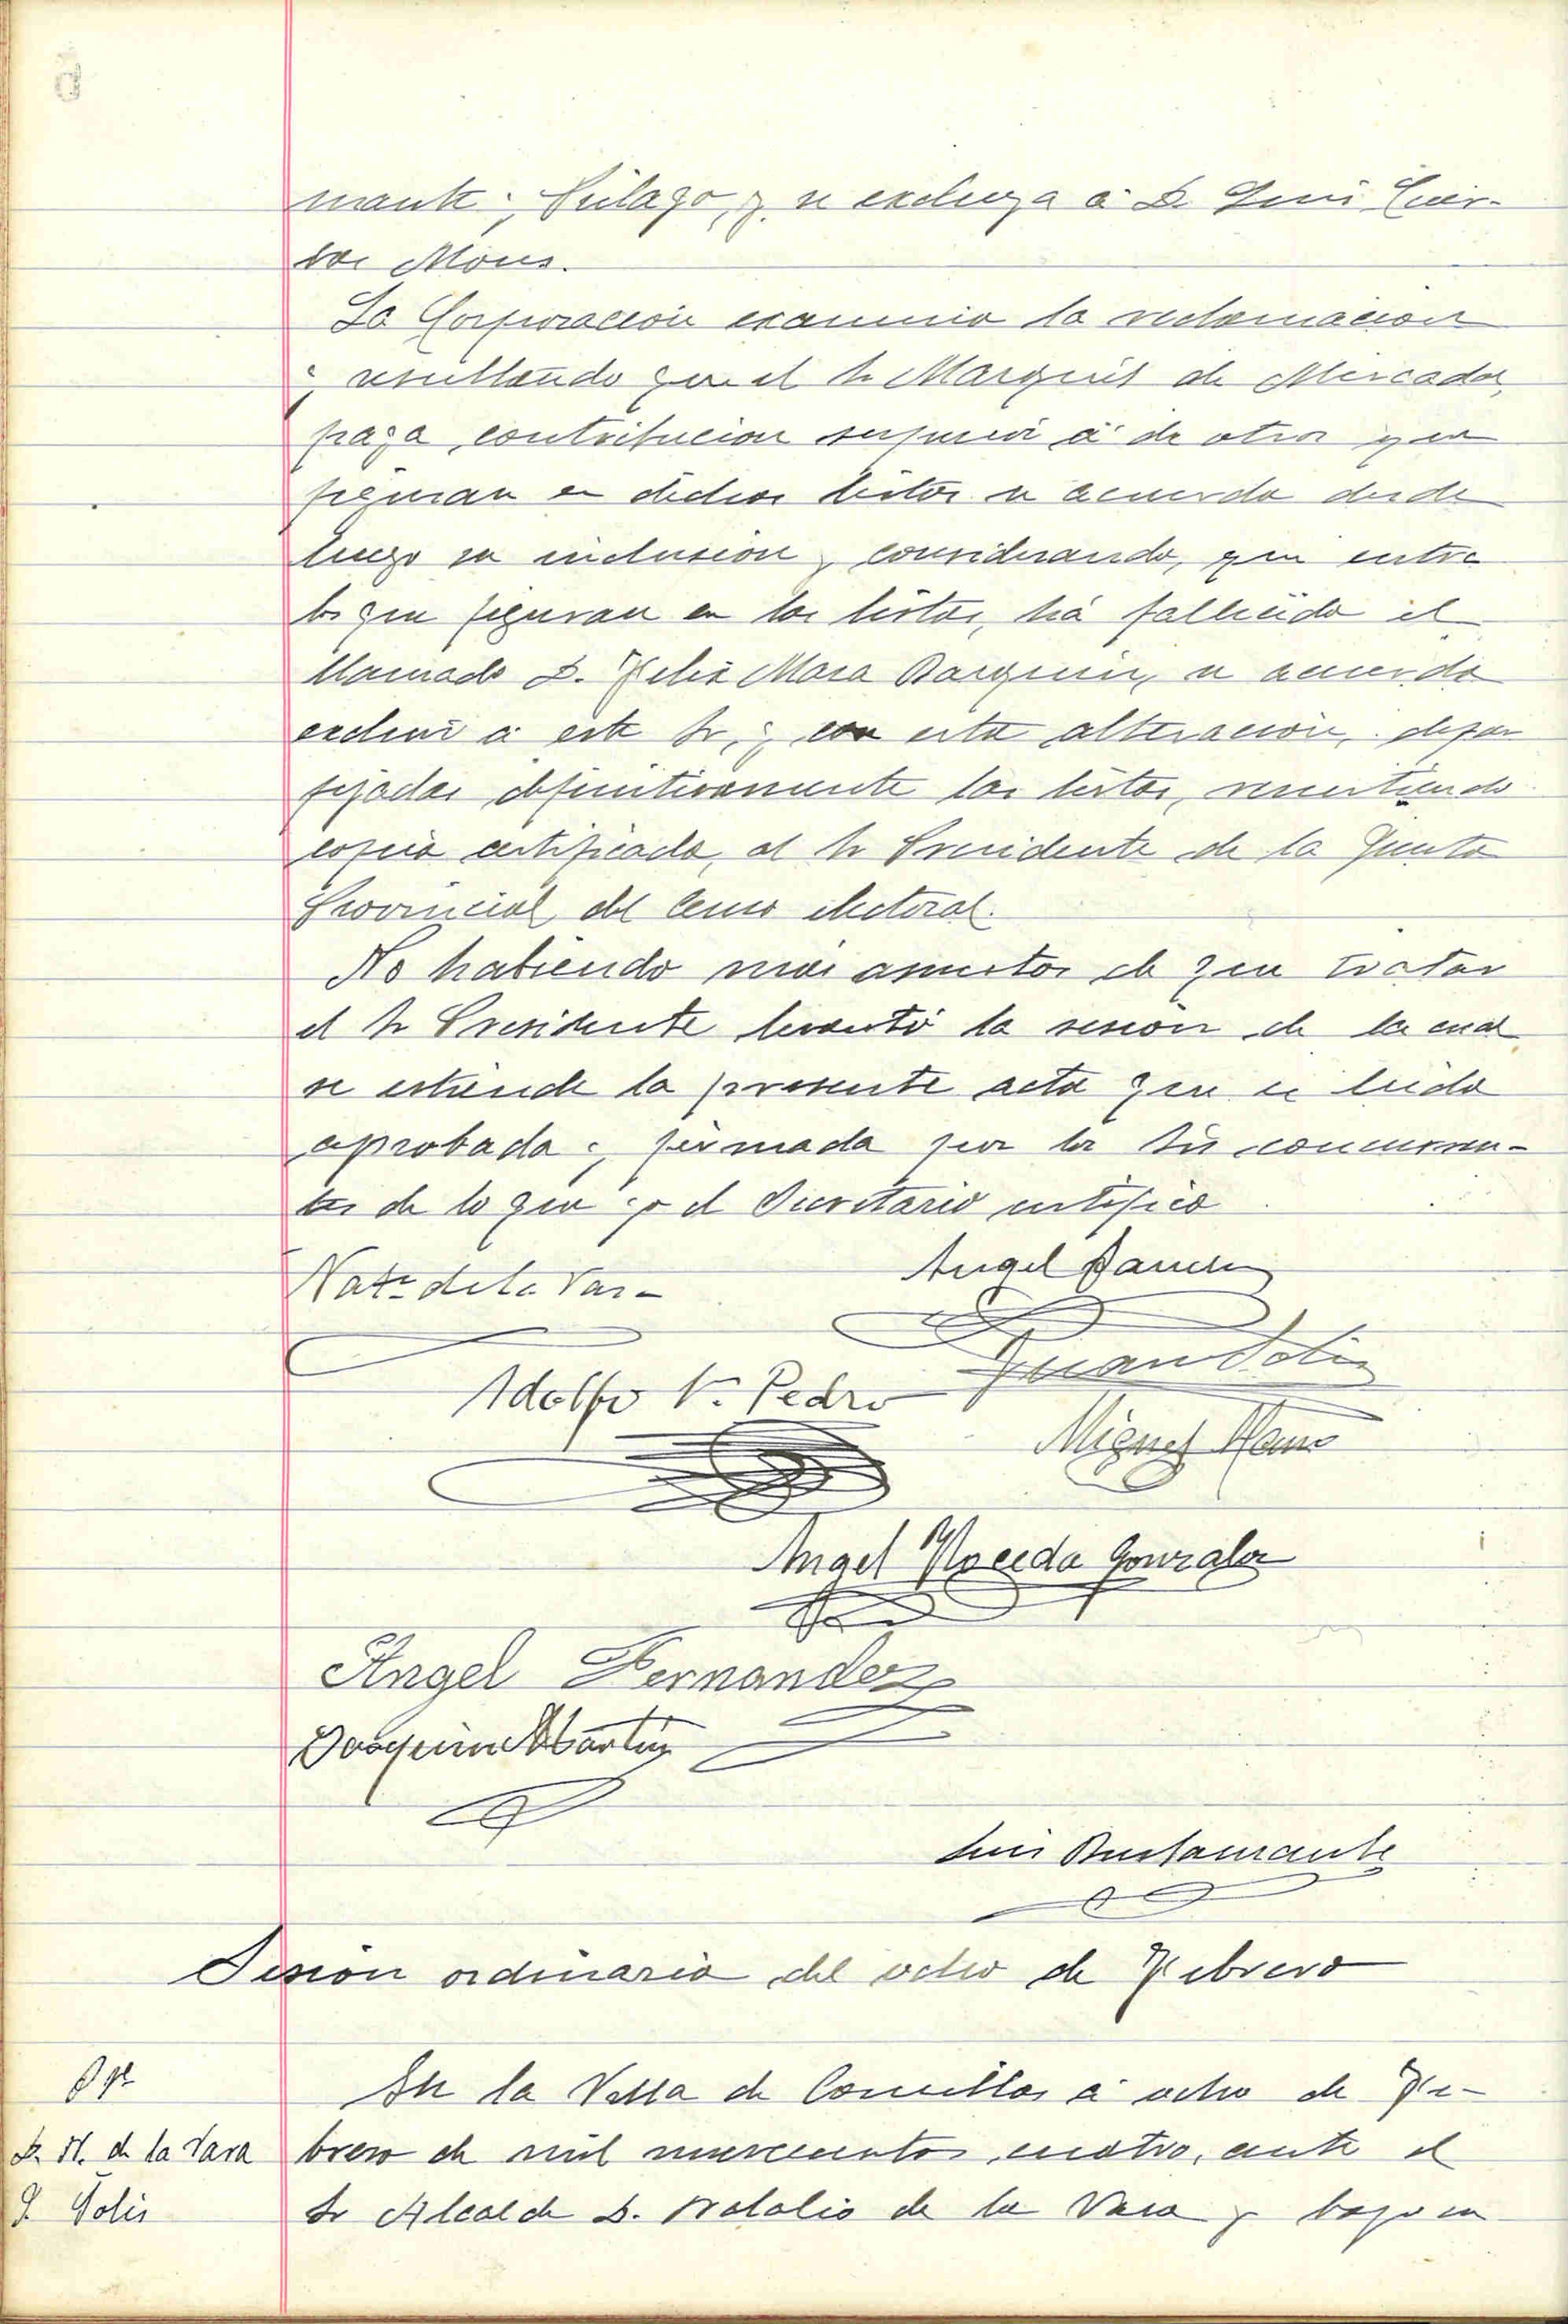 y se excluya á D.
Mons.
La Corporación examinó la reclamación
y resultando que el Sr Marqués de Mercadal,
paga contribución superior á de otros que
figuran en dichas listas se acuerda desde
luego su inclusión, considerando, que entre
los que figuran en las listas, há fallecido el
llamado D. Felix Mara Barquin, se acuerda
excluir á este Sr, y con esta alteración, dejar
fijadas definitivamente las listas, remitiendo
copia certificada, al Sr Presidente de la Junta
Provincial del Censo electoral.
No habiendo mas asuntos de que tratar
el Sr Presidente levantó la sesión de la cual
se extiende la presente acta que es leida
aprobada y firmada por los Sres concurren-
tes de lo que yo el Secretario certifico
Nat.º de la Vara
Angel
Juan Solis
Adolfo V. Pedro
Miguel
Angel Noceda Gonzalez
Angel Fernandez
Joaquin Martin
Luis Bustamante
Sesión ordinaria del ocho de Febrero
En la Villa de Comillas á ocho de Fe-
D. N. de la Vara
brero de mil novecientos cuatro, ante el
J. Solis
Sr Alcalde D. Natalio de la Vara y bajo su